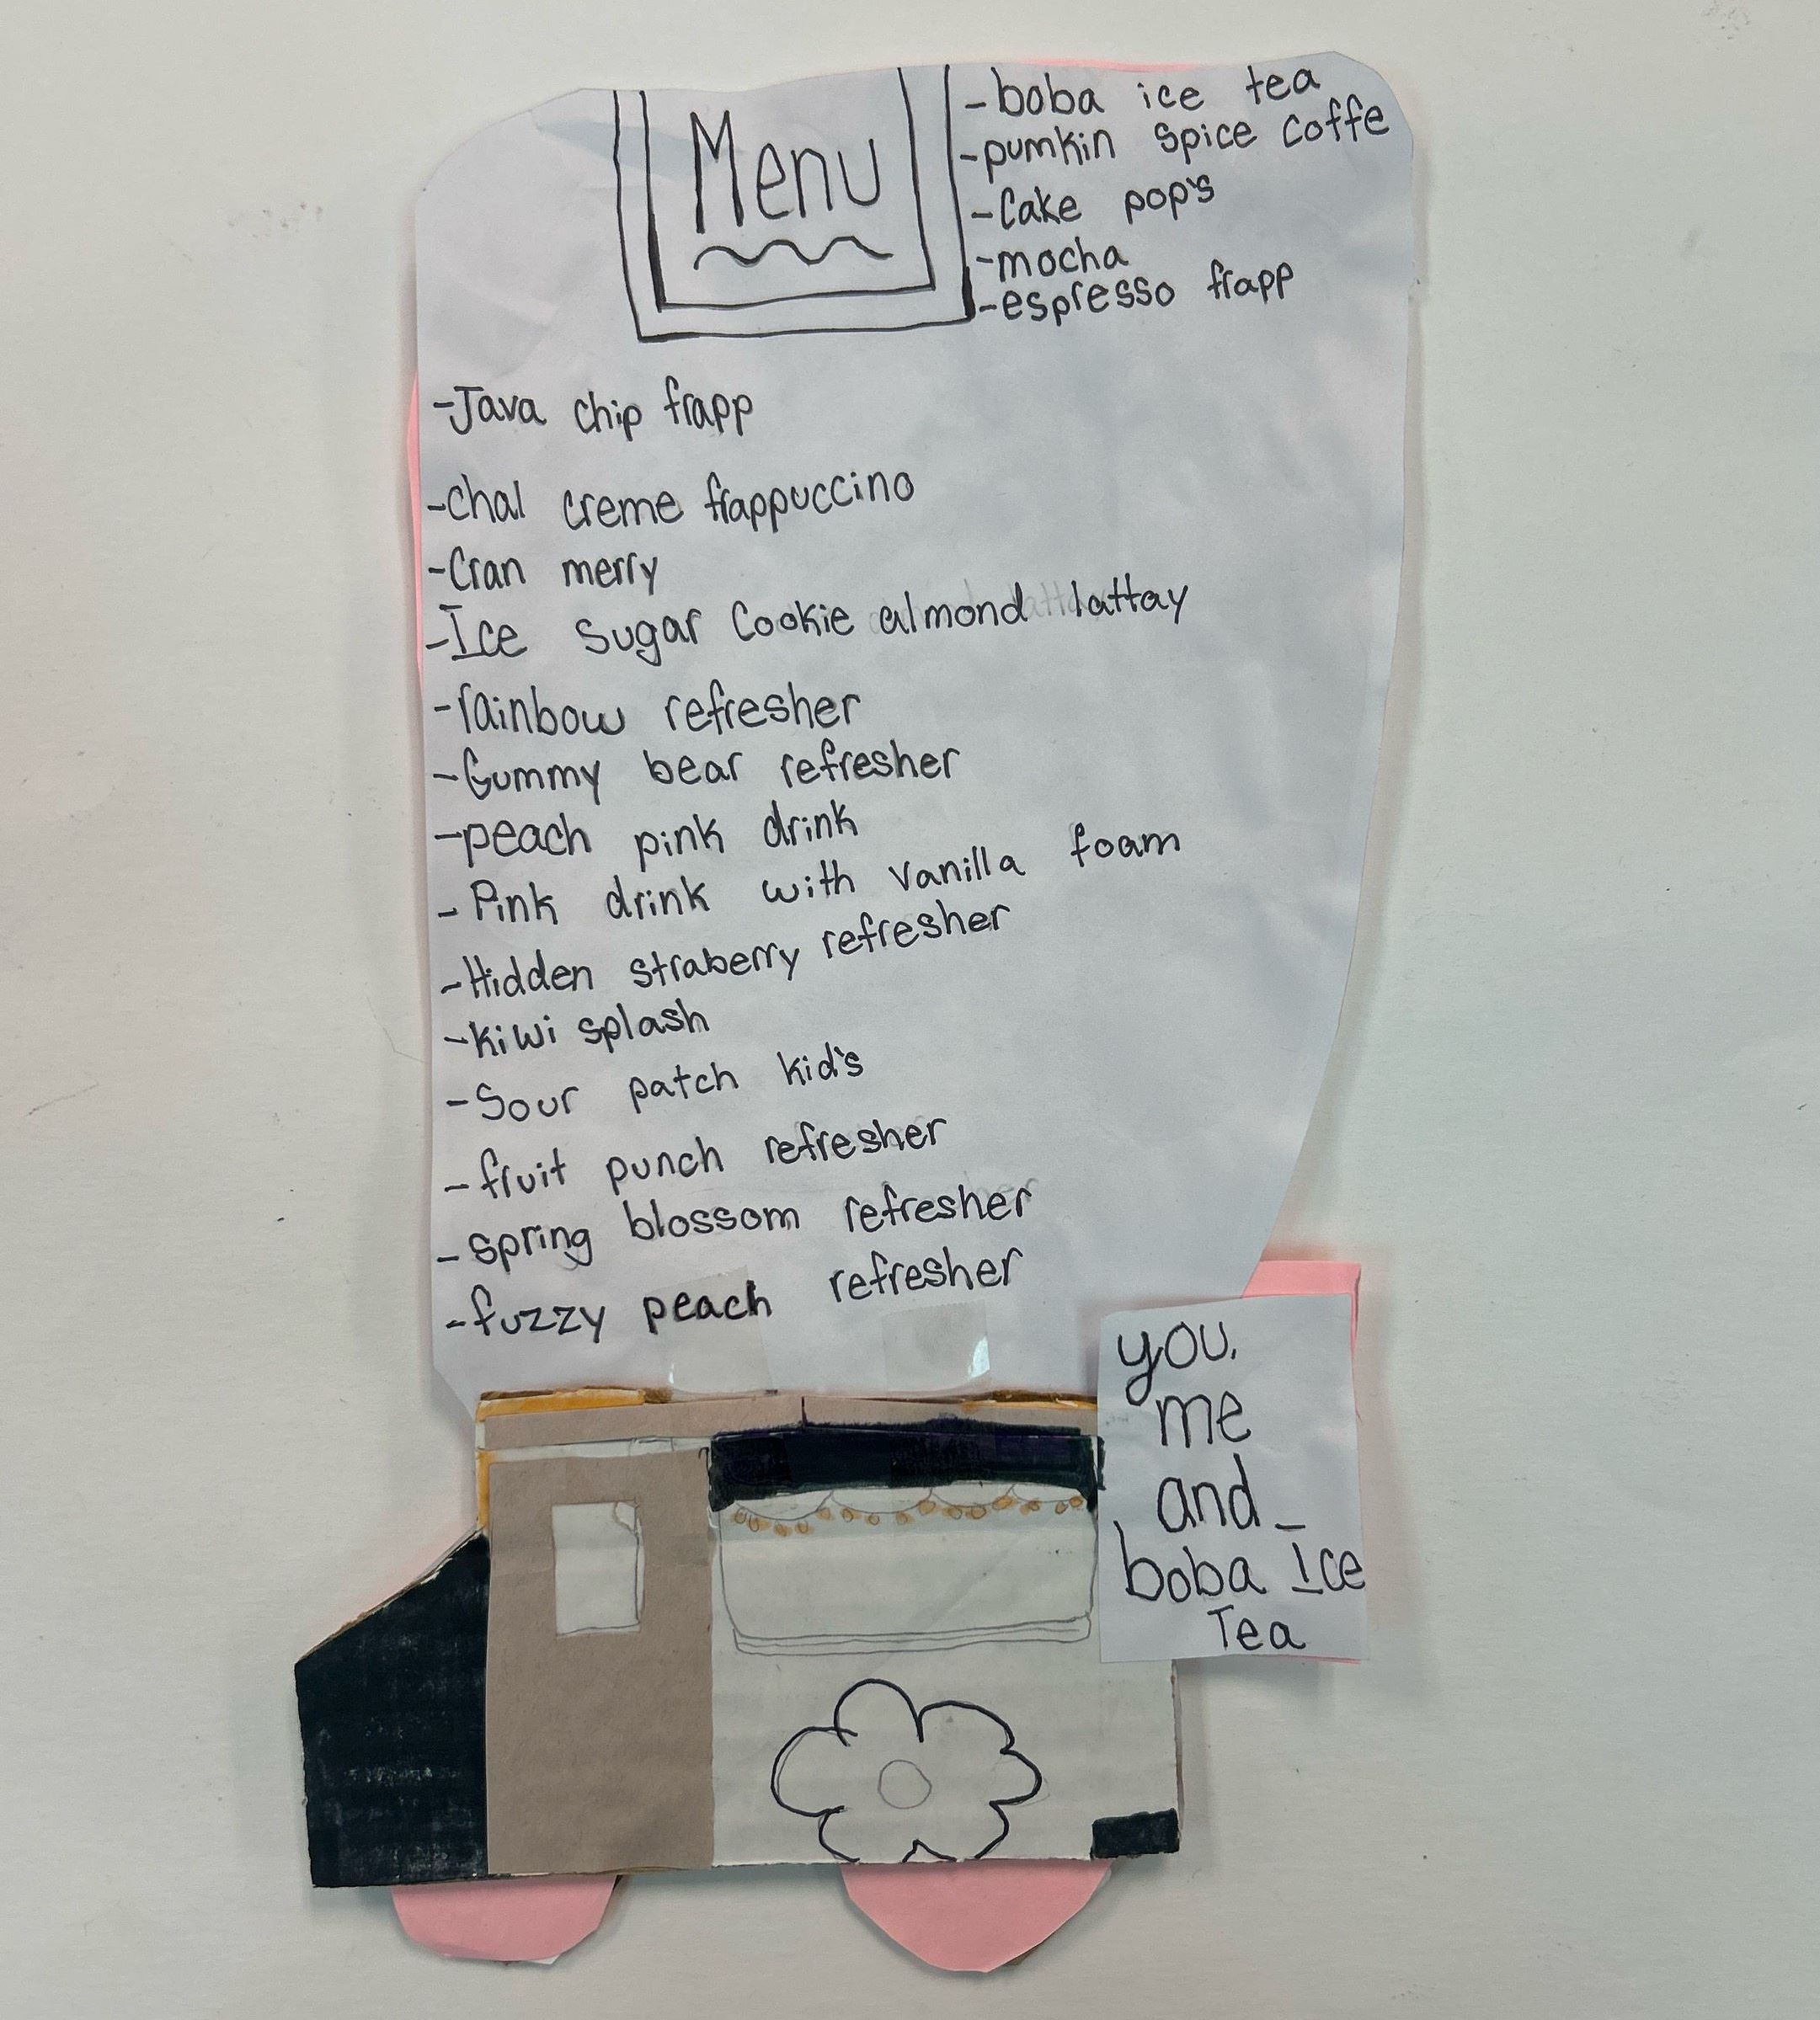 Menu
-boba ice tea
-pumkin spice coffe
-Cake pop's
-mocha
-espresso frapp
-Java chip frapp
-chal creme frappuccino
-Cran merry
-Ice sugar Cookie almond lattay
-rainbow refresher
-Gummy bear refresher
-peach pink drink
- Pink drink with vanilla foam
-Hidden straberry refresher
-kiwi splash
-Sour patch kid's
- fruit punch refresher
- spring blossom refresher
-fuzzy peach refresher
you,
me
and_
boba Ice
Tea